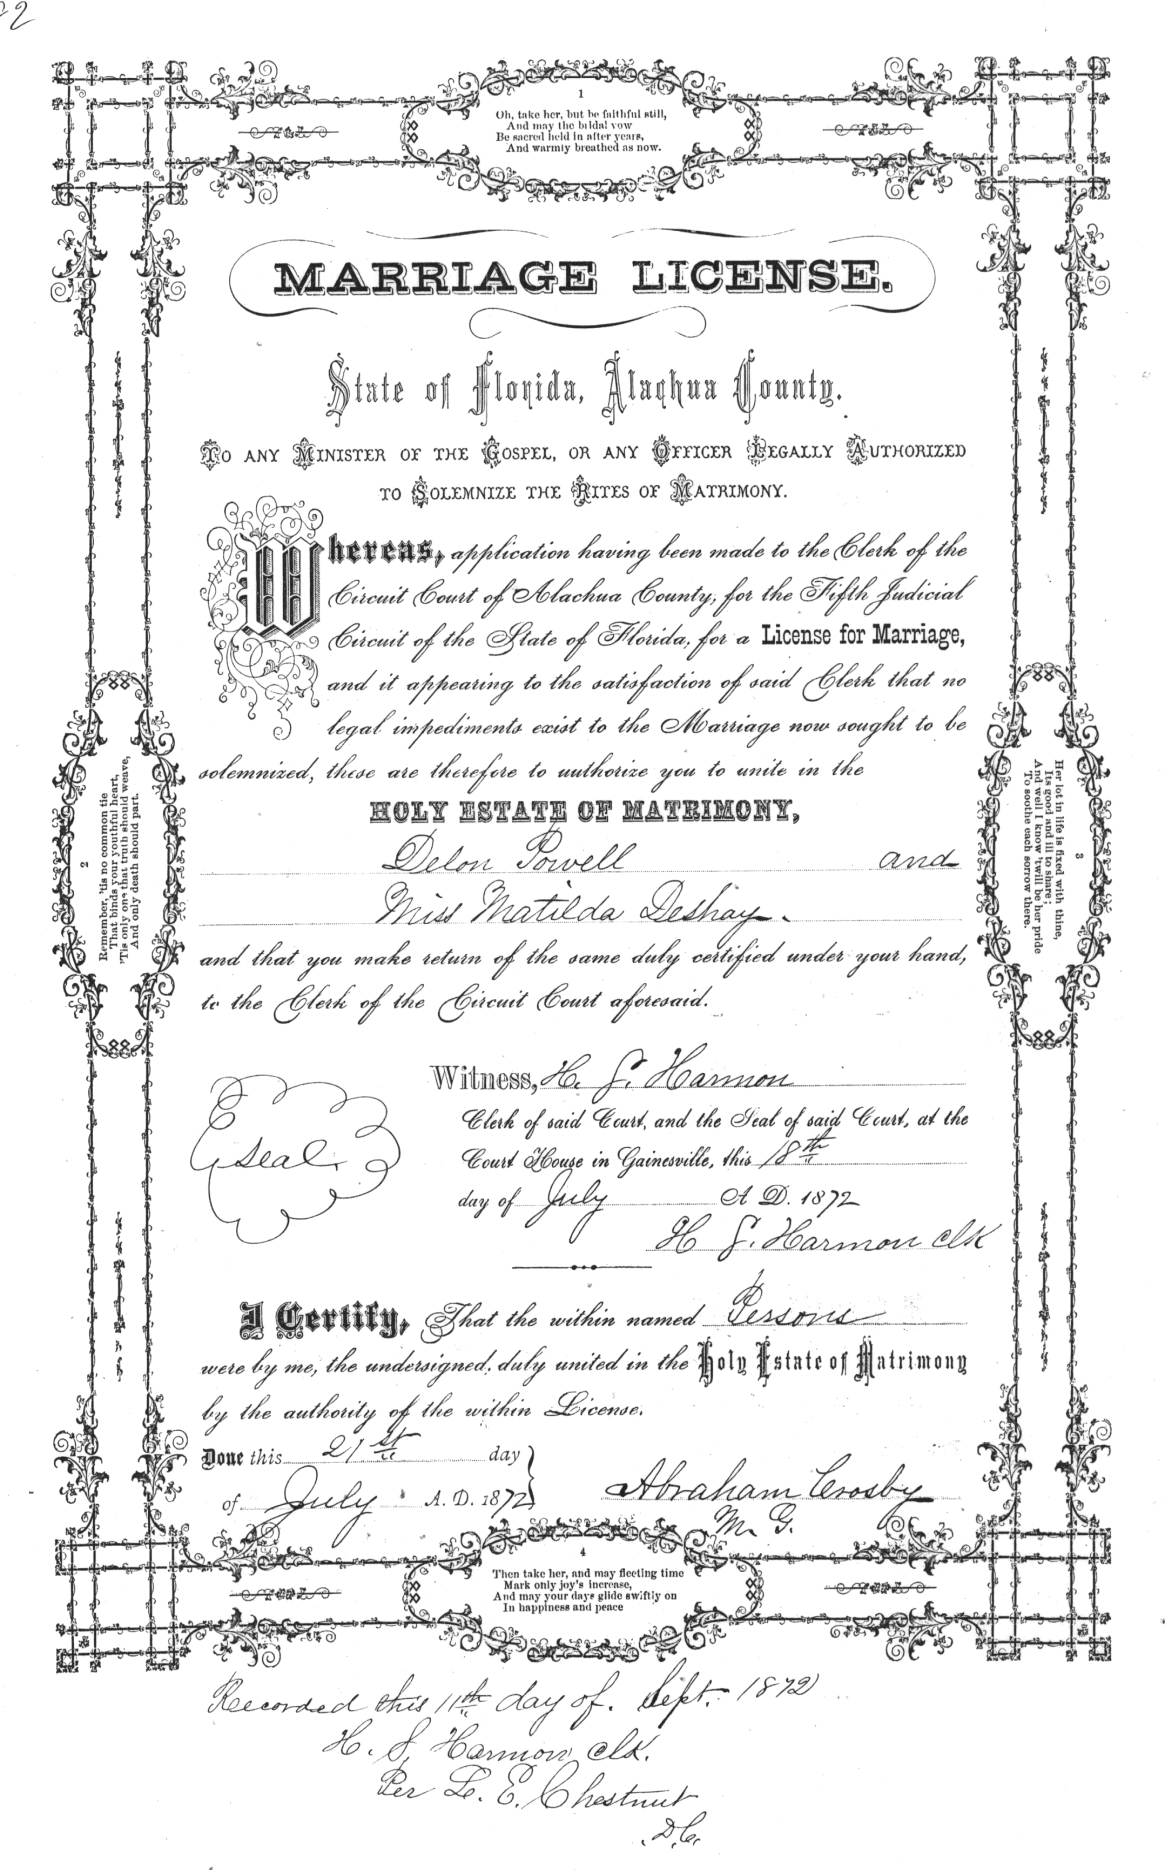 1
Oh, take her, but be faithful still,
And may the bridal vow
Be sacred held in after years,
And warmly breathed as now.
MARRIAGE LICENSE.
State of Florida, Alachua County.
TO ANY MINISTER OF THE GOSPEL, OR ANY OFFICER LEGALLY AUTHORIZED
TO SOLEMNIZE THE RITES OF MATRIMONY.
Whereas, application having been made to the Clerk of the
Circuit Court of Alachua County, for the Fifth Judicial
Circuit of the State of Florida, for a License for Marriage,
and it appearing to the satisfaction of said Clerk that no
legal impediments exist to the Marriage now sought to be
solemnized, these are therefore to authorize you to unite in the
HOLY ESTATE OF MATRIMONY,
Delon Powell and
Miss Matilda Deshay.
and that you make return of the same duly certified under your hand,
to the Clerk of the Circuit Court aforesaid.
2
Remember, 'tis no common tie
That binds your youthful heart,
'Tis only one that truth should weave,
And only death should part.
3
Her lot in life is fixed with thine,
Its good and ill to share;
And well I know 'twill be her pride
To soothe each sorrow there.
Witness, H. S. Harmon
Clerk of said Court, and the Seal of said Court, at the
Court House in Gainesville, this 18th
day of July A D. 1872
Seal.
H S. Harmon clk
I Certify, That the within named Persons
were by me, the undersigned, duly united in the Holy Estate of Matrimony
by the authority of the within License.
Done this 21st day
of July A. D. 1872
Abraham Crosby
M. G.
4
Then take her, and may fleeting time
Mark only joy's increase,
And may your days glide swiftly on
In happiness and peace
Recorded this 11th day of. Sept. 1872
H. S. Harmon clk.
Per L. E. Chestnut
D.C.